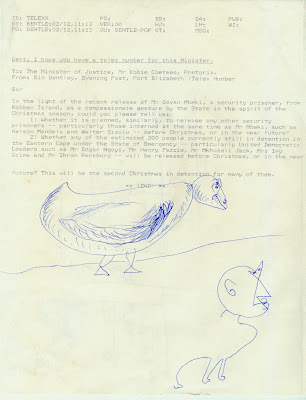 ID: TELEXX PG: ED: DA: PUB:
BY: BENTLE:02/12,11:13 VER:00 HJ: IMW WI:
PO: BENTLE:02/12,11:13 QU: BENTLE-POP ST: MSG:
Gert, I hope you have a telex number for this Minister.
To: The Minister of Justice, Mr Kobie Coetsee, Pretoria.
From: Bin Bentley, Evening Post, Port Elizabeth (Telex Number
Sir
In the light of the recent release of Mr Govan Mbeki, a security prisoner, from
Robben Island, as a compassionate gesture by the State in the spirit of the
Christmas season, could you please tell us:
1: Whether it is planned, similarly, to release any other security
prisoners -- particularly those jailed at the same time as Mr Mbeki, such as
Nelson Mandela and Walter Sisulu -- before Christmas, or in the near future?
2) Whether any of the estimated 200 people currently still in detention in
the Eastern Cape under the State of Emergency -- particularly United Democratic
leaders such as Mr Edgar Ngoyi, Mr Henry Fazzie, Mr Mkhuseli Jack, Mrs Ivy
Gcina and Mr Ihron Rensburg -- will be released before Christmas, or in the near
future? This will be the second Christmas in detention for many of them.
** (END) **